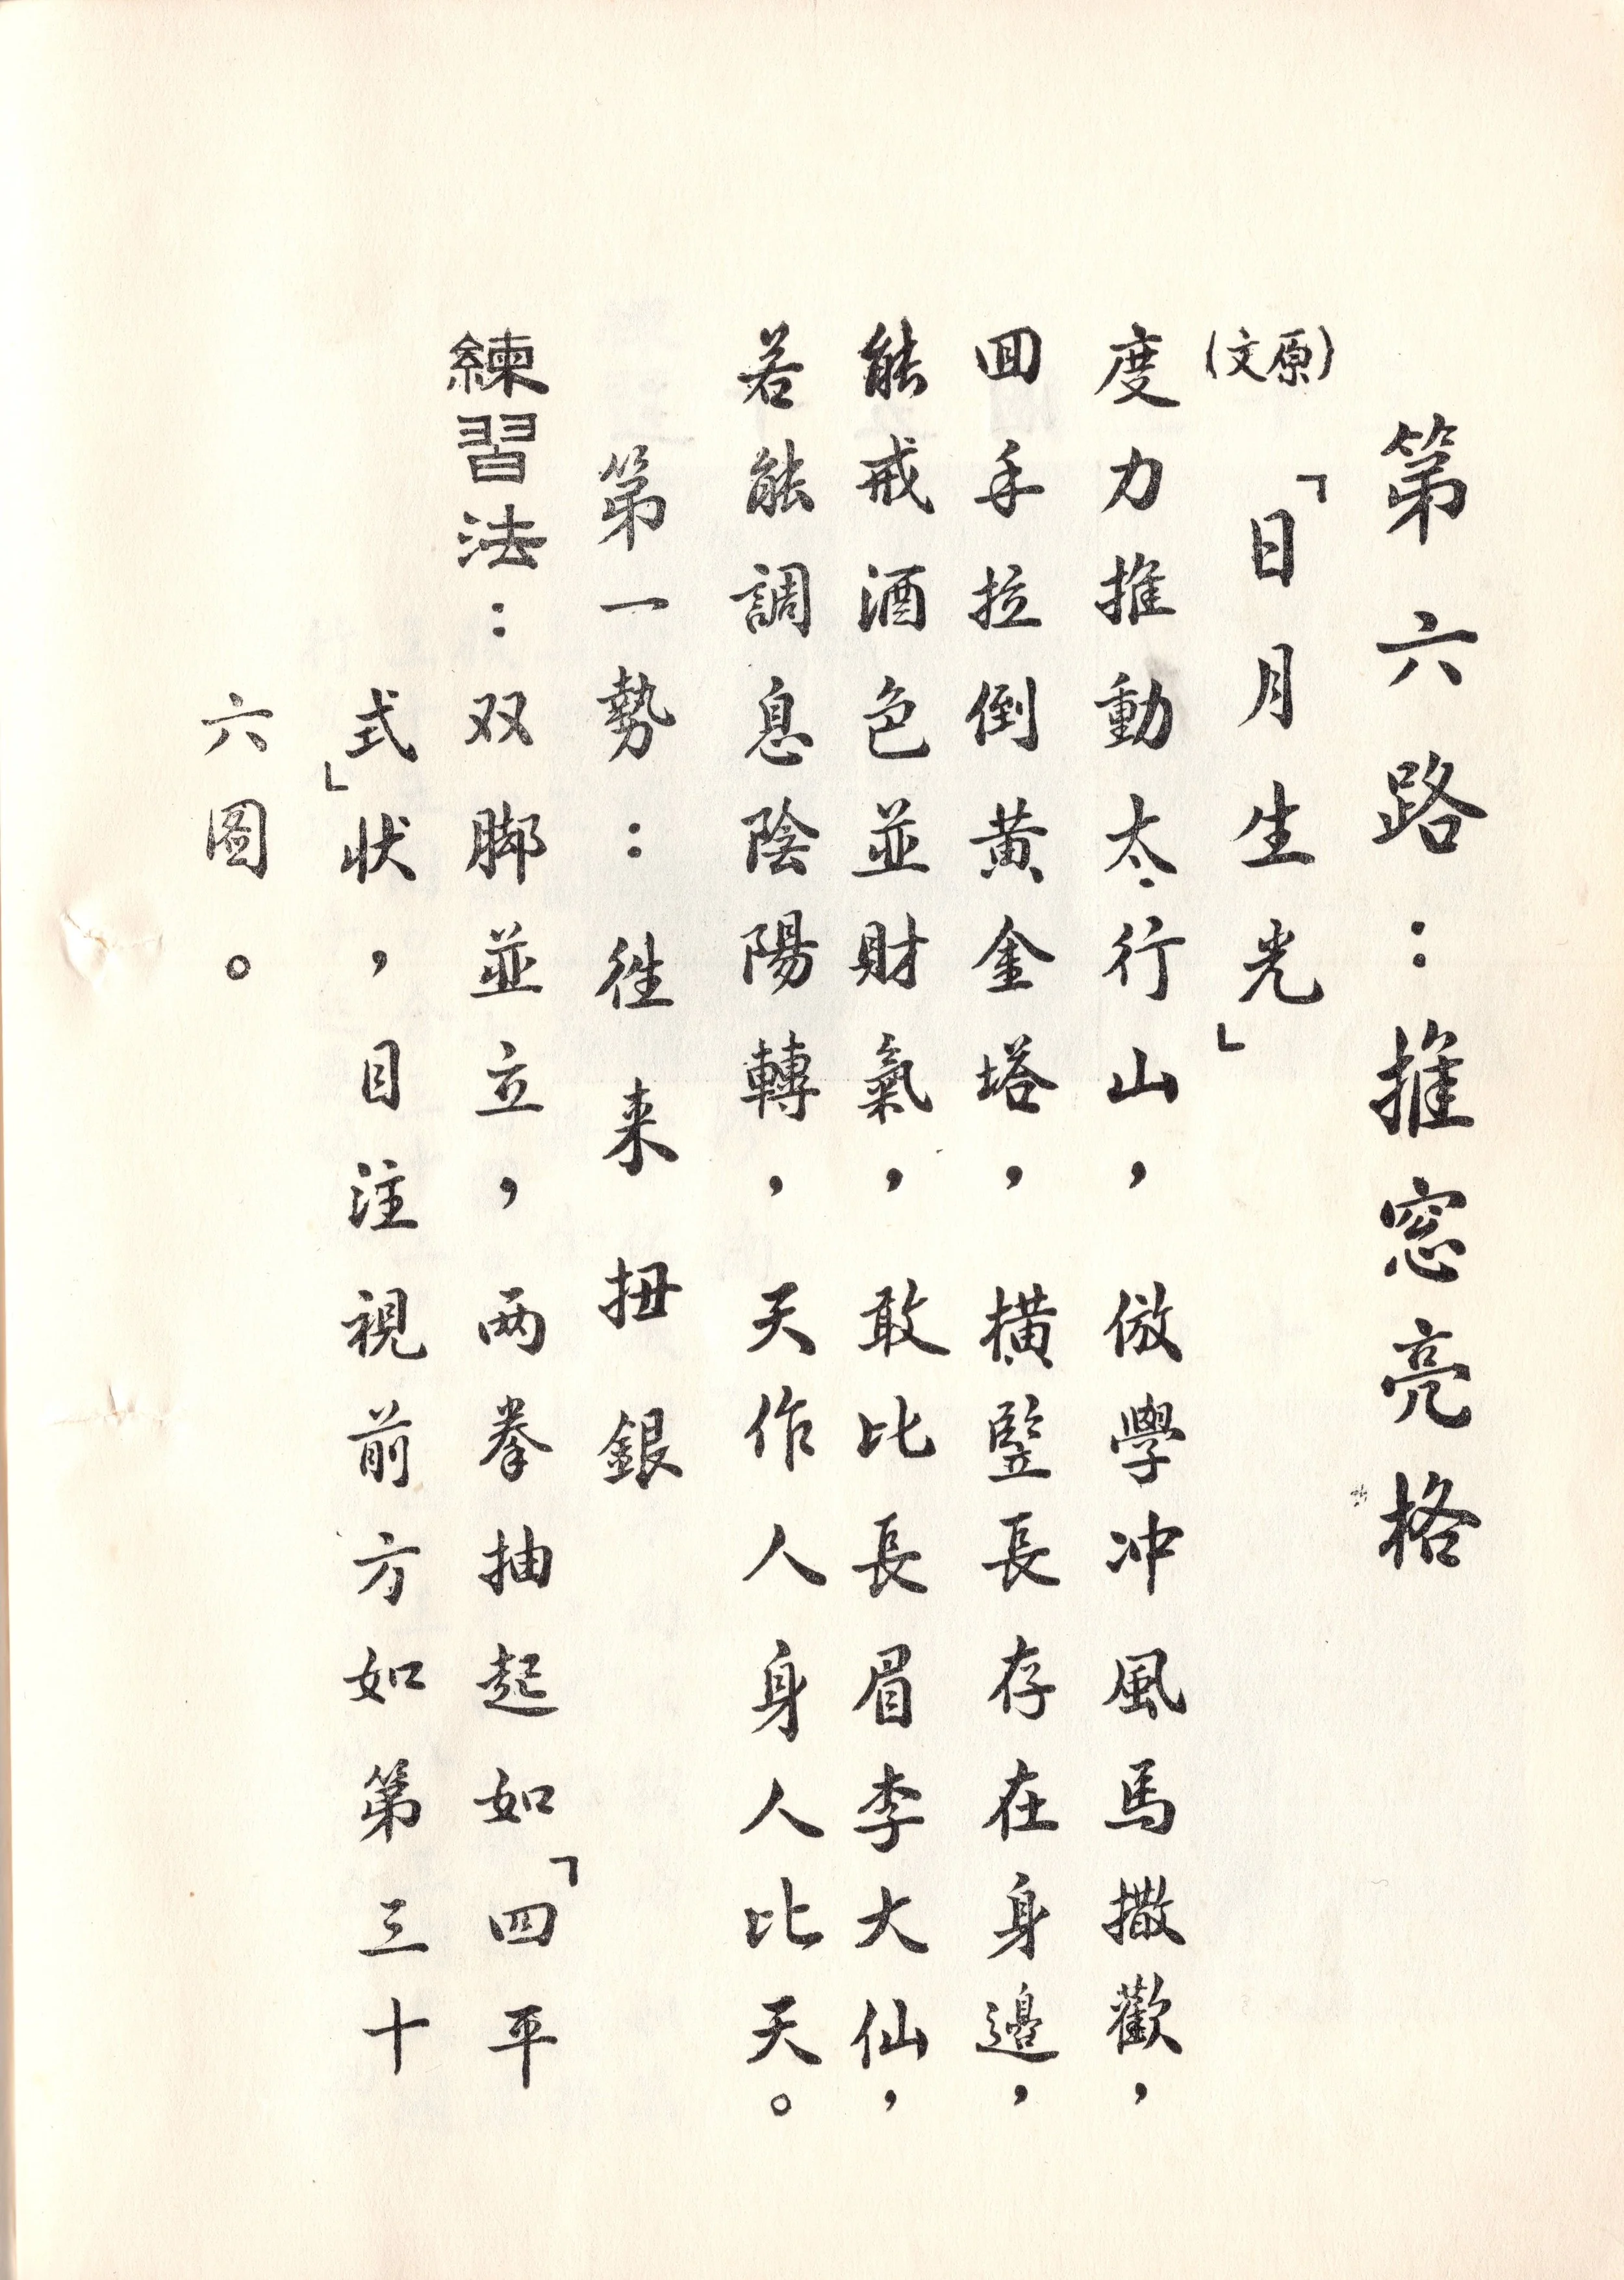 第六路：推窓亮格
(原文)「日月生光」
度力推動太行山，倣學冲風馬撒歡，
囬手拉倒黄金塔，橫竪長存在身邊，
能戒酒色並財氣，敢比長眉李大仙，
若能調息陰陽轉，天作人身人比天。
第一勢：徃来扭銀
練習法：双脚並立，两拳抽起如「四平
式」状，目注視前方如第三十
六圖。